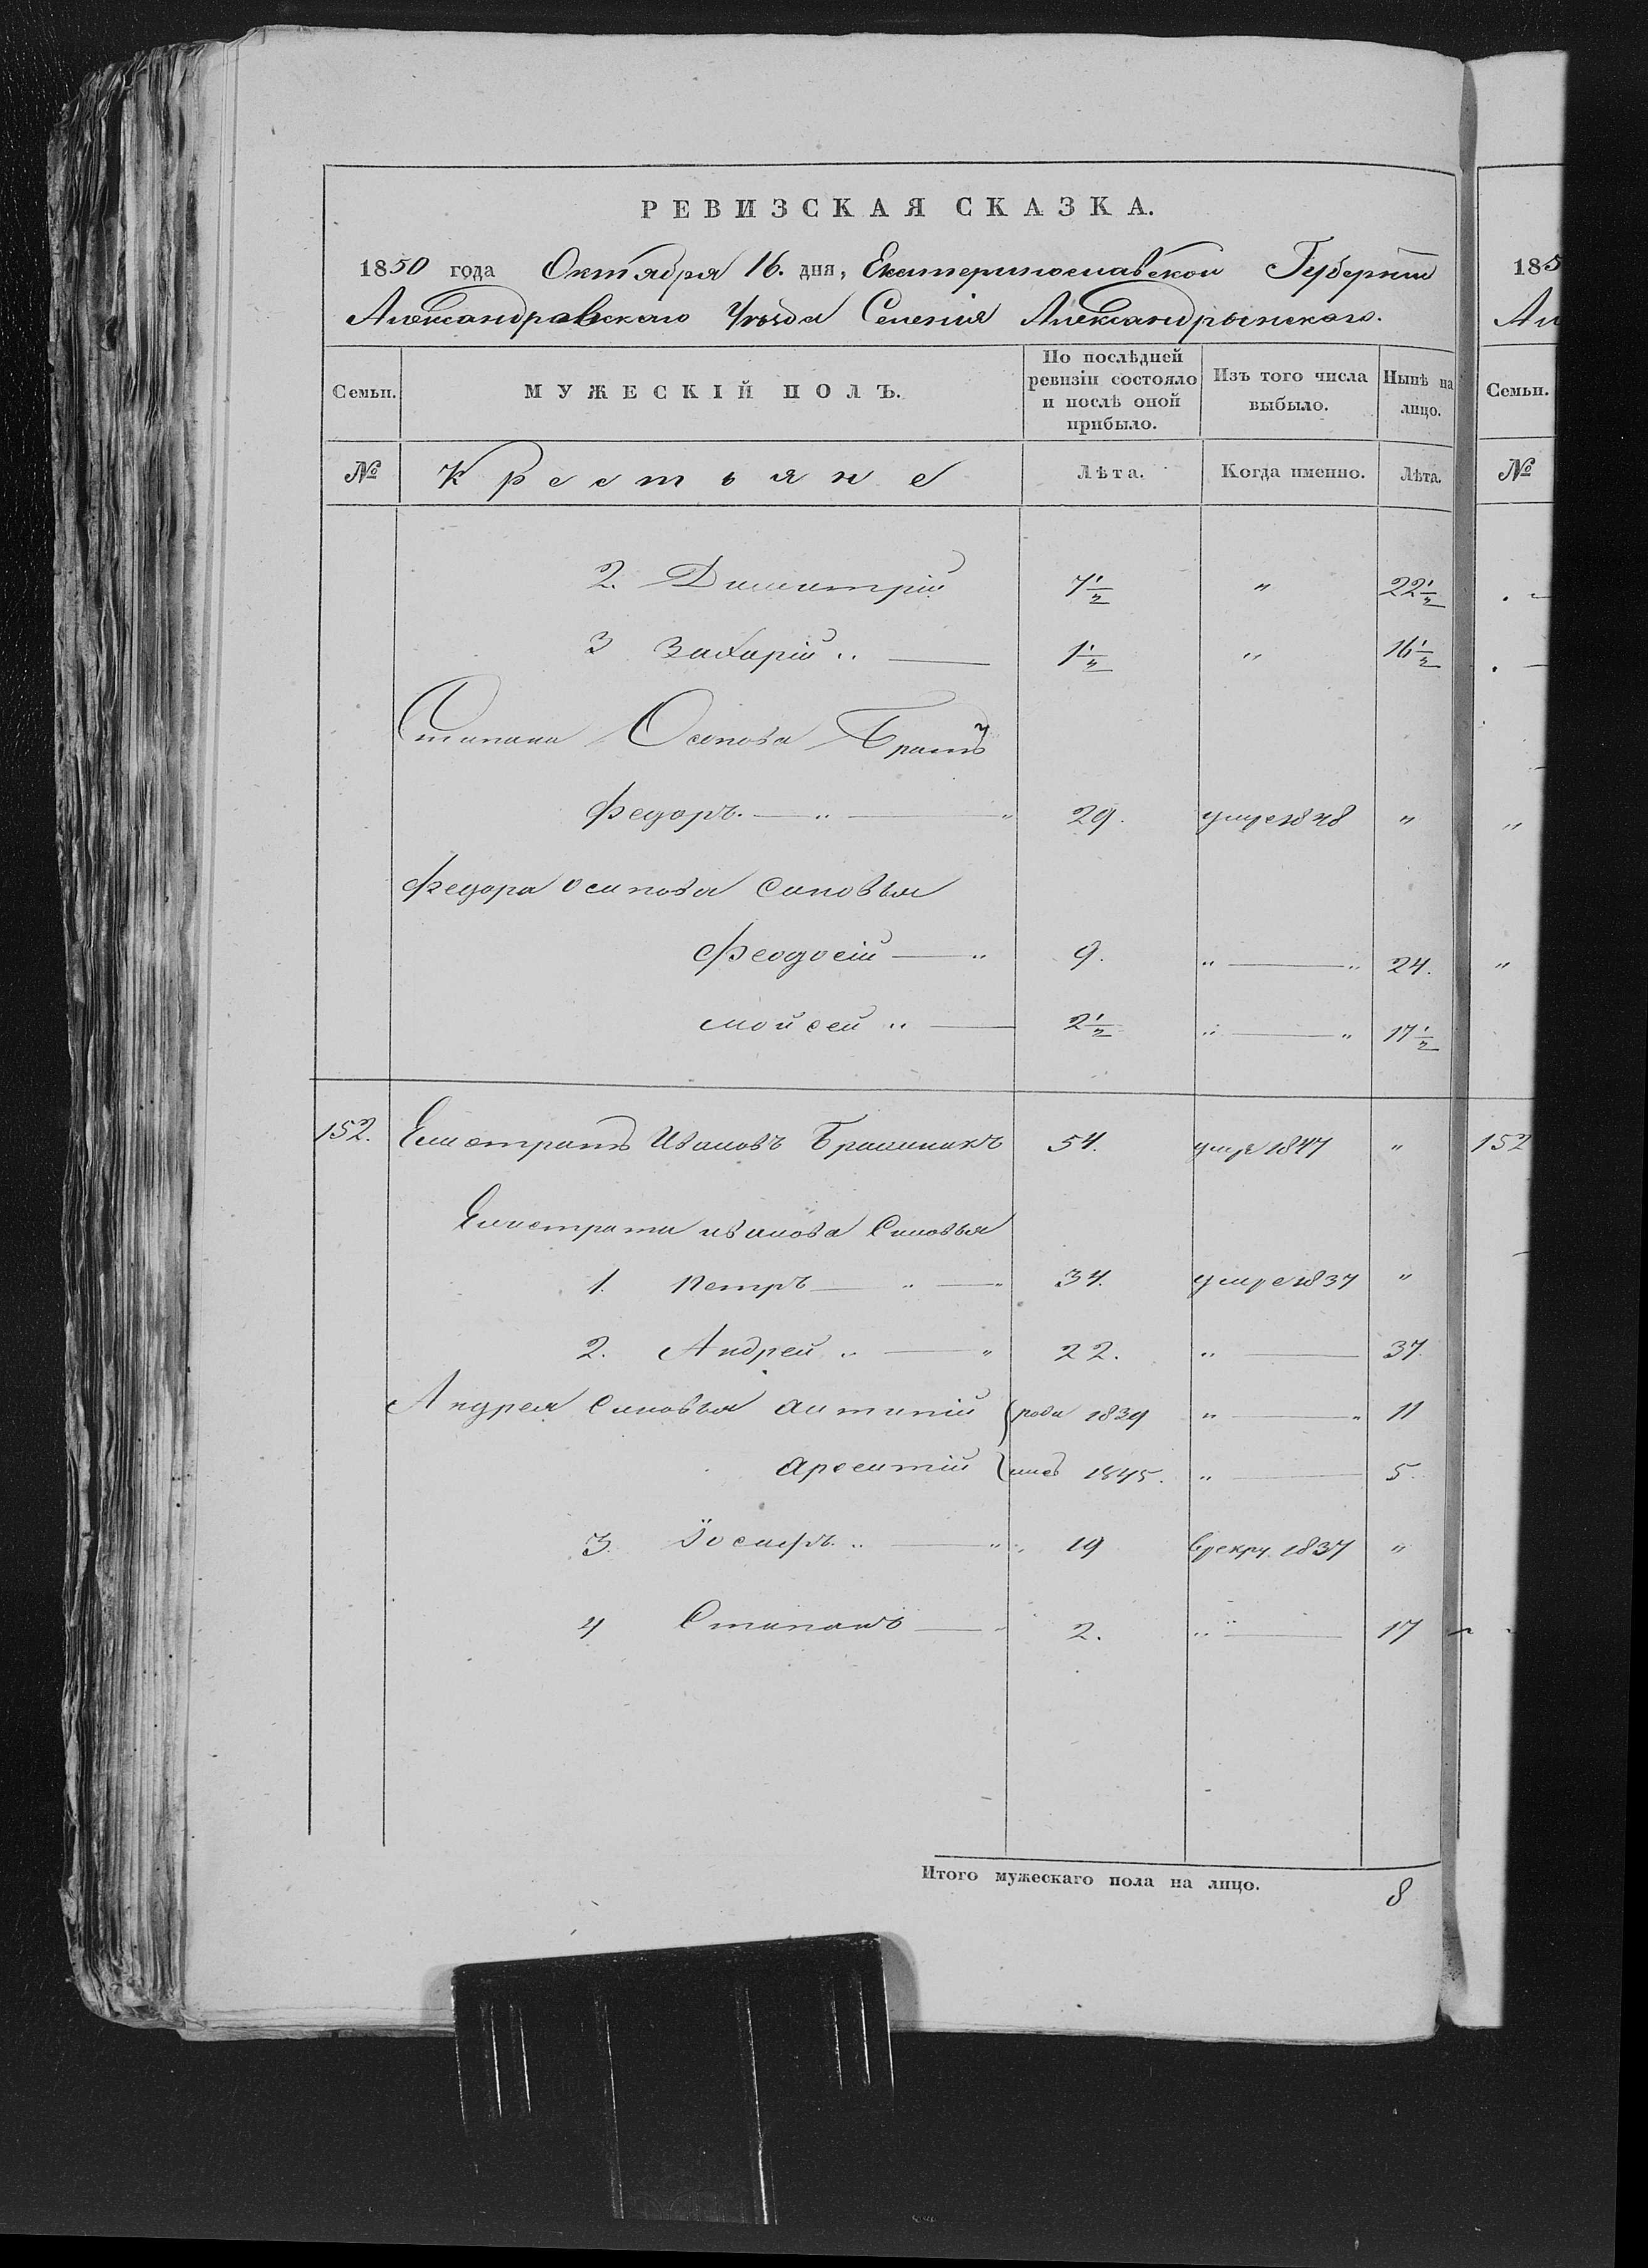 РЕВИЗСКАЯ СКАЗКА.
1850 года Октября 16. дня, Екатеринославской Губерніи
Александравскаго Уѣзда Селенія Александрынскаго.
Семьи. МУЖЕСКІЙ ПОЛЪ. По послѣдней ревизіи состояло и послѣ оной прибыло. Изъ того числа выбыло. Нынѣ на лицо.
№ Крестьяне Лѣта. Когда именно. Лѣта.
2. Димитрій 7½ " 22½
3 Захарій " 1½ " 16½
Стипана Осипова Братъ
Федоръ. " " 29. умре 1848 "
Федора Осипова Синовья
Феодосій " 9. " " 24.
Мойсей " 2½ " " 17½
152. Елистратъ Ивановъ 54. умре 1847 "
Елистрата Иванова Синовья
1. Петръ " " 34. умре 1837 "
2. Андрей " " 22. " 37.
Андрея Синовья Антипій роди 1839 " " 11
Арсентій лись 1845. " 5.
3. Іосифъ " " 19 в рекру. 1837 "
4 Стипанъ " 2. " 17
Итого мужескаго пола на лицо. 8
185
Ал
Семьи.
№
152